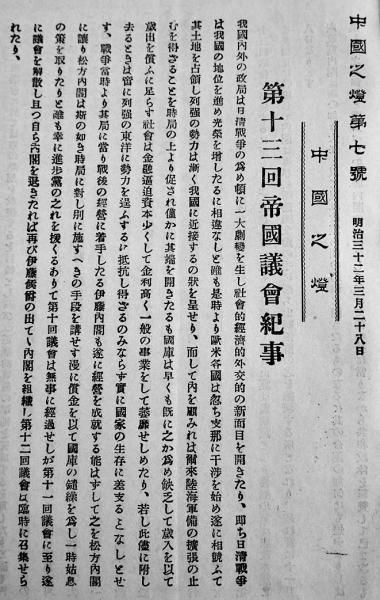 中國之燈第七號
明治三十二年三月二十八日
中國之燈
第十三回帝國議會紀事
我國內外の政局は日清戰爭の為め頓に一大劇變を生し社會的經濟的外交的の新面目を開きたり、即ち日清戰爭
は我國の地位を進め光榮を增したるに相違なしと雖も是時より歐米各國は忽ち支那に干涉を始め遂に相競ふて
其土地を占領し列强の勢力は漸く我國に近接するの狀を呈せり、而して內を顧みれは爾來陸海軍備の擴張の止
むを得さることを時局の上より促され僅かに其端を開きたるも國庫は早くも既に之か為め缺乏して歲入を以て
歲出を償ふに足らす社會は金融逼迫資本少くして金利高く一般の事業をして萎靡せしめたり、若し此儘に附し
去るときは啻に列强の東洋に勢力を逞ふするに抵抗し得さるのみならす實に國家の生存に差支ることなしとせ
す、戰爭當時より其局に當り戰後の經營に着手したる伊藤內閣も遂に經營を成就する能はすして之を松方內閣
に讓り松方內閣は斯の如き時局に對し別に施すへきの手段を講せす漫に償金を以て國庫の繾綣を爲し一時姑息
の策を取りたりと雖も幸に進步黨の之れを援くるありて第十回議會は無事に經過せしが第十一回議會に至り遂
に議會を解散し且つ自ら內閣を退きたれは再び伊藤侯爵の出て丶內閣を組織し第十二回議會は臨時に召集せら
れたり、